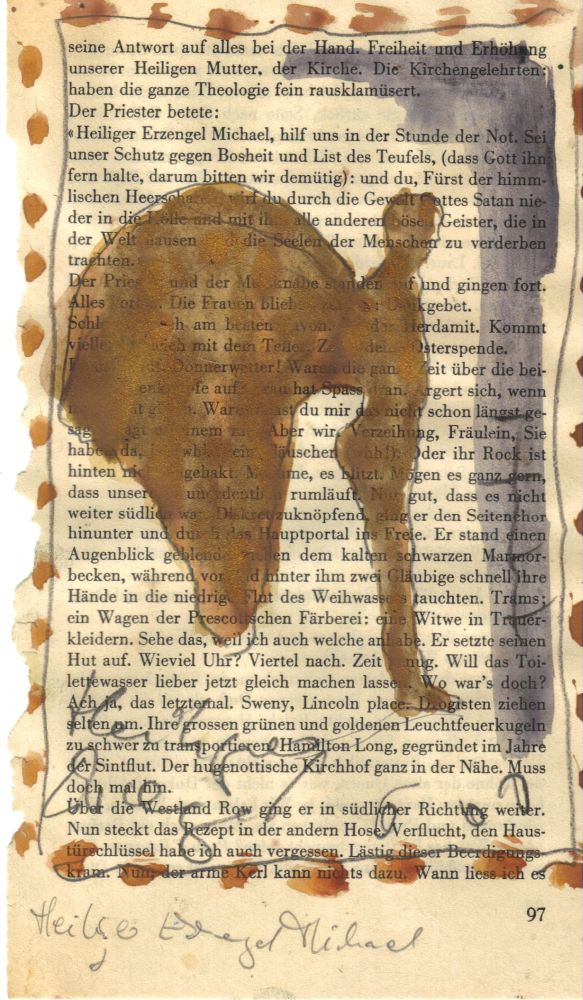 seine Antwort auf alles bei der Hand. Freiheit und Erhöhung
unserer Heiligen Mutter, der Kirche. Die Kirchengelehrten:
haben die ganze Theologie fein rausklamüsert.
Der Priester betete:
«Heiliger Erzengel Michael, hilf uns in der Stunde der Not. Sei
unser Schutz gegen Bosheit und List des Teufels, (dass Gott ihn
fern halte, darum bitten wir demütig): und du, Fürst der himm-
lischen Heerscharen, wirf du durch die Gewalt Gottes Satan nie-
der in die Hölle und mit ihm alle anderen bösen Geister, die in
der Welt hausen die Seelen der Menschen zu verderben
trachten.
Der Priester und der Messknabe standen auf und gingen fort.
Alles vorbei. Die Frauen blieben Dankgebet.
am besten davon. Herdamit. Kommt
vielleicht mit dem Teller. Osterspende.
Donnerwetter! Waren die ganze Zeit über die bei-
auf? Frau hat Spass dran. Ärgert sich, wenn
Warum hast du mir das nicht schon längst ge-
Aber wir. Verzeihung, Fräulein, Sie
haben da, ein Fläuschen Oder ihr Rock ist
hinten nicht gehakt. es blitzt. Mögen es ganz gern,
dass unsereins unordentlich rumläuft. Nur gut, dass es nicht
weiter südlich war. Diskret zuknöpfend, ging er den Seitenchor
hinunter und durch das Hauptportal ins Freie. Er stand einen
Augenblick geblendet neben dem kalten schwarzen Marmor-
becken, während vor und hinter ihm zwei Gläubige schnell ihre
Hände in die niedrige Flut des Weihwassers tauchten. Trams:
ein Wagen der Prescottschen Färberei: eine Witwe in Trauer-
kleidern. Sehe das, weil ich auch welche anhabe. Er setzte seinen
Hut auf. Wieviel Uhr? Viertel nach. Zeit genug. Will das Toi-
lettewasser lieber jetzt gleich machen lassen. Wo war's doch?
Ach ja, das letztemal. Sweny, Lincoln place. Drogisten ziehen
selten um. Ihre grossen grünen und goldenen Leuchtfeuerkugeln
zu schwer zu transportieren. Hamilton Long, gegründet im Jahre
der Sintflut. Der hugenottische Kirchhof ganz in der Nähe. Muss
doch mal hin.
Über die Westland Row ging er in südlicher Richtung weiter.
Nun steckt das Rezept in der andern Hose. Verflucht, den Haus-
türschlüssel habe ich auch vergessen. Lästig dieser Beerdigungs-
kram. Nun, der arme Kerl kann nichts dazu. Wann liess ich es
97
Heiliger Erzengel Michael